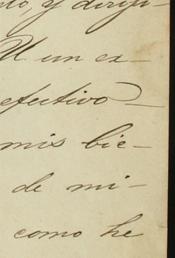 to, y diriji-
U un ex-
efectivo
mis bie-
de mi-
como he